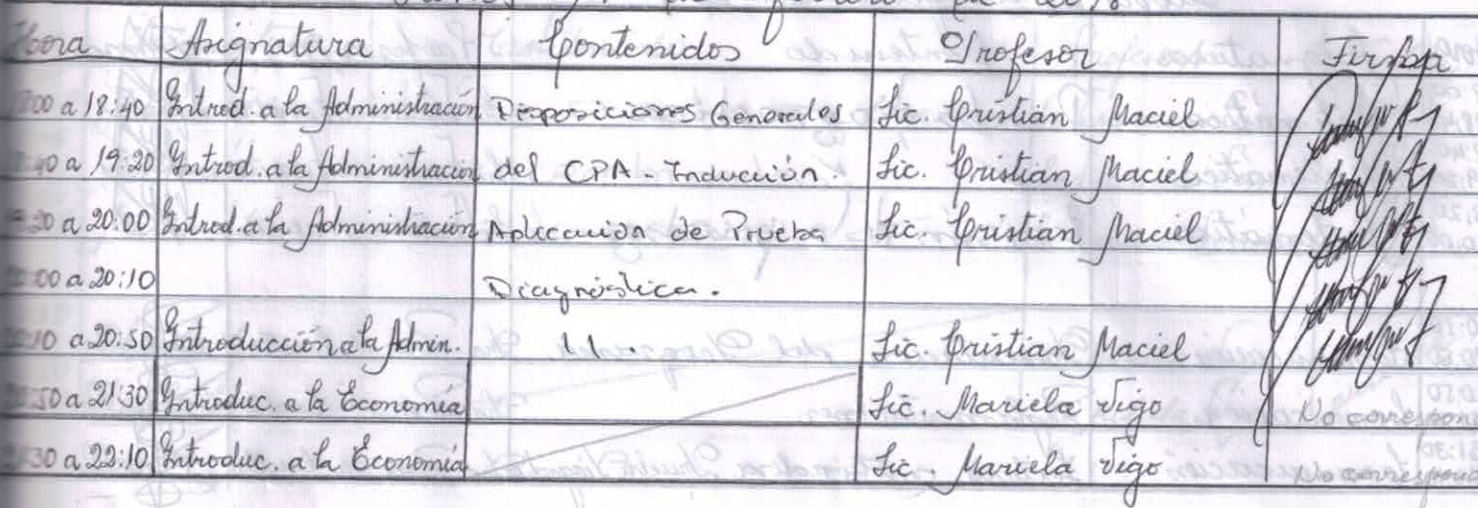 Hora Asignatura Contenidos Profesor Firma
:00 a 18:40 Introd. a la Administración Disposiciones Generales Lic. Cristian Maciel
:40 a 19:20 Introd. a la Administración del CPA - Inducción. Lic. Cristian Maciel
:20 a 20:00 Introd. a la Administración Aplicación de Prueba Lic. Cristian Maciel
:00 a 20:10 Diagnóstica.
:10 a 20:50 Introducción a la Admin. 11. Lic. Cristian Maciel
:50 a 21:30 Introduc. a la Economía Lic. Mariela Vigo No correspon
:30 a 22:10 Introduc. a la Economía Lic. Mariela Vigo No correspond